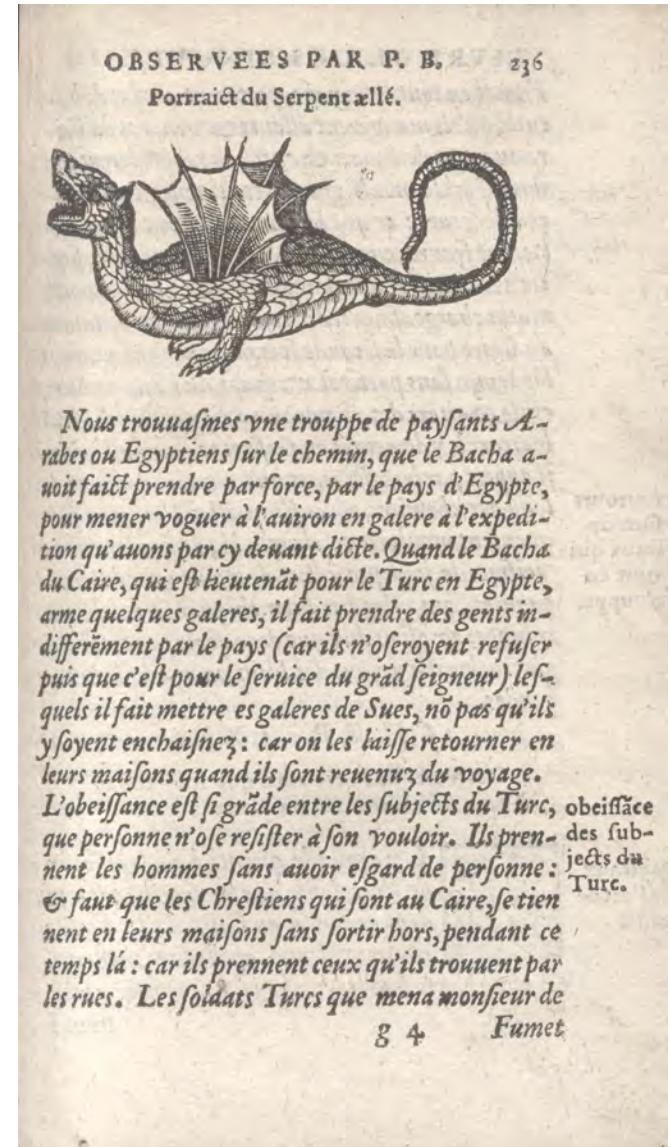 OBSERVEES PAR P. B. 236
Porrraict du Serpent ællé.
Nous trouuaſmes vne trouppe de payſants A-
rabes ou Egyptiens ſur le chemin, que le Bacha a-
uoit faict prendre par force, par le pays d'Egypte,
pour mener voguer à l'auiron en galere à l'expedi-
tion qu'auons par cy deuant dicte. Quand le Bacha
du Caire, qui eſt lieutenãt pour le Turc en Egypte,
arme quelques galeres, il fait prendre des gents in-
differẽment par le pays (car ils n'oſeroyent refuſer
puis que c'eſt pour le ſeruice du grãd ſeigneur) leſ-
quels il fait mettre es galeres de Sues, nõ pas qu'ils
y ſoyent enchaiſnez: car on les laiſſe retourner en
leurs maiſons quand ils ſont reuenuz du voyage.
L'obeiſſance eſt ſi grãde entre les ſubjects du Turc,
que perſonne n'oſe reſiſter à ſon vouloir. Ils pren-
nent les hommes ſans auoir eſgard de perſonne:
& faut que les Chreſtiens qui ſont au Caire, ſe tien
nent en leurs maiſons ſans ſortir hors, pendant ce
temps lá: car ils prennent ceux qu'ils trouuent par
les rues. Les ſoldats Turcs que mena monſieur de
obeiſſãce
des ſub-
jects du
Turc.
g 4 Fumet